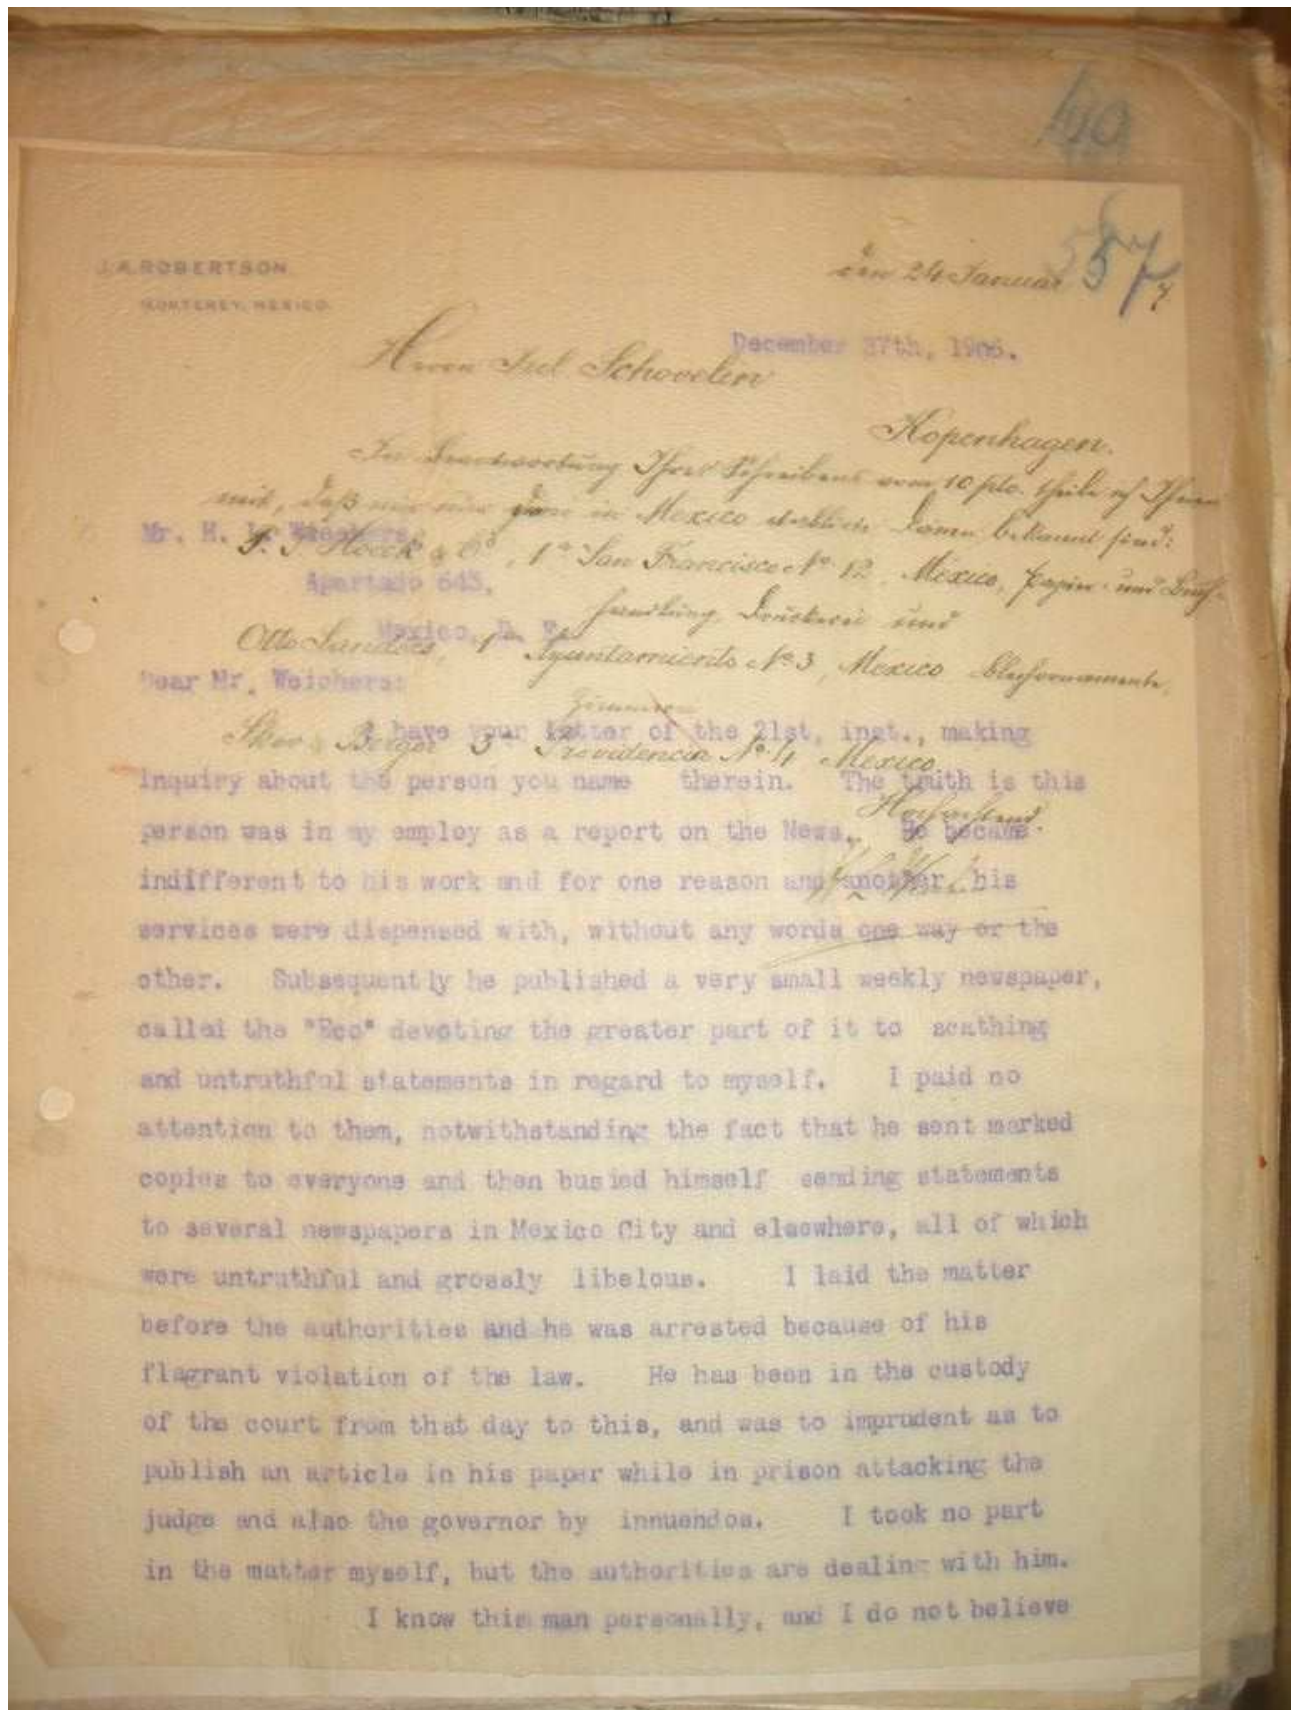 60
557
J. A. ROBERTSON
MONTEREY, MEXICO.
den 24 Januar 7
December 27th, 1906.
Herrn Jul. Schovelin
Kopenhagen.
In Beantwortung Ihres Schreibens vom 10 pto. theile ich Ihnen
mit, daß mir nur in Mexico bekannt sind:
Mr. H. Weichers,
F. P. Hoeck & Co, 1a San Francisco No 12, Mexico, Papier- und Buch-
Apartado 643,
handlung, Druckerei und
Mexico, D. F.
Otto Sanders, 1a Ayuntamiento No 3, Mexico
Dear Mr. Weichers:
I have your letter of the 21st, inst., making
Berger 3a Providencia No 4 Mexico
inquiry about the person you name therein. The truth is this
Hochachtend
person was in my employ as a report on the News. He became
indifferent to his work and for one reason and another his
services were dispensed with, without any words one way or the
other. Subsequently he published a very small weekly newspaper,
called the "Eco" devoting the greater part of it to scathing
and untruthful statements in regard to myself. I paid no
attention to them, notwithstanding the fact that he sent marked
copies to everyone and then busied himself sending statements
to several newspapers in Mexico City and elsewhere, all of which
were untruthful and grossly libelous. I laid the matter
before the authorities and he was arrested because of his
flagrant violation of the law. He has been in the custody
of the court from that day to this, and was to imprudent as to
publish an article in his paper while in prison attacking the
judge and also the governor by innuendos. I took no part
in the matter myself, but the authorities are dealing with him.
I know this man personally, and I do not believe